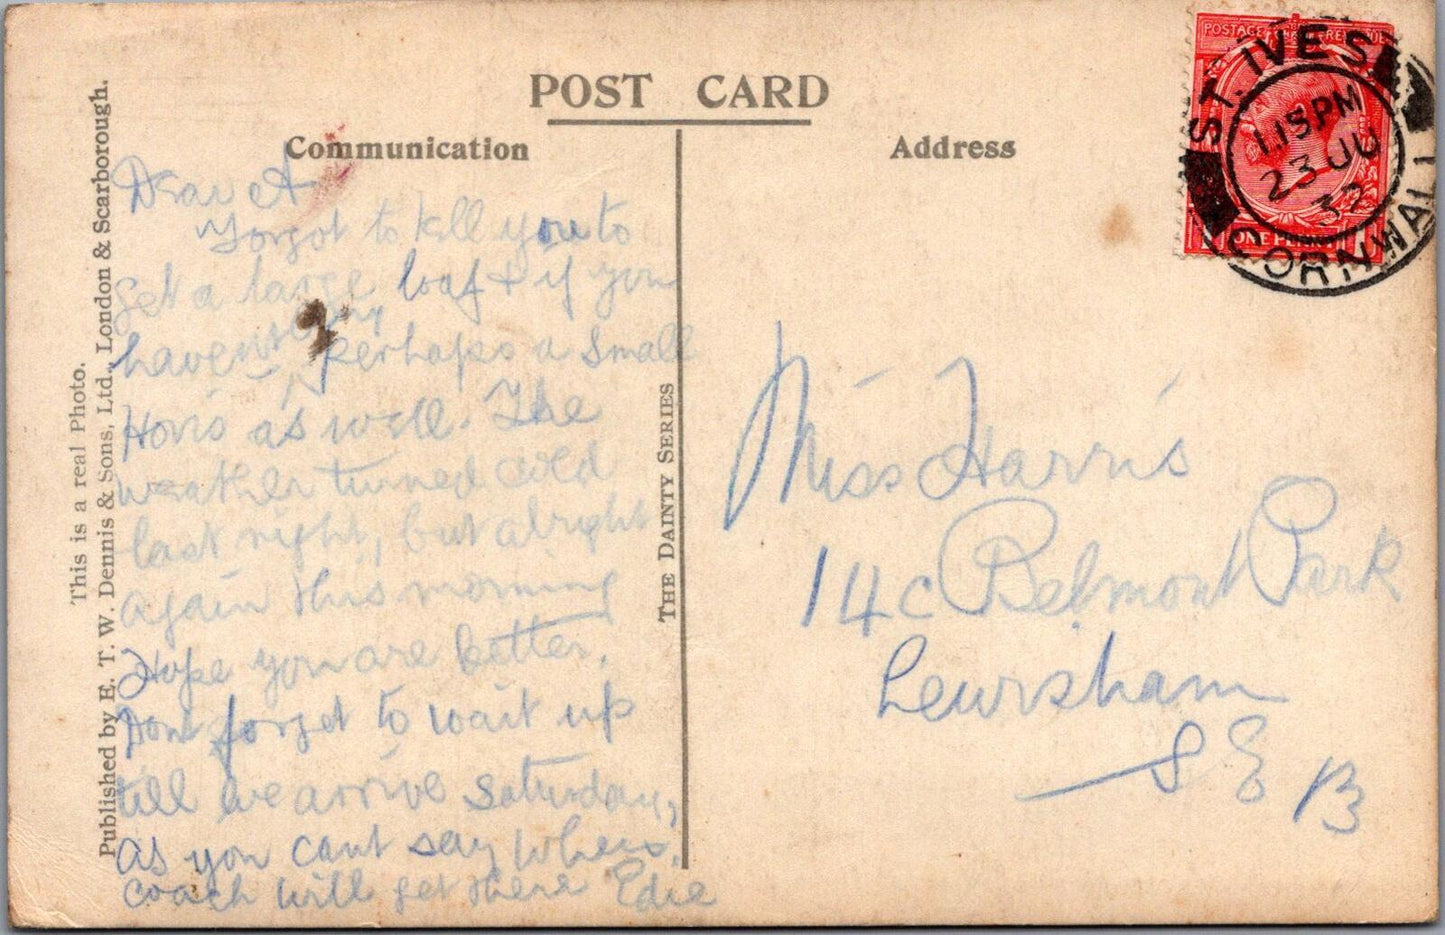 POST CARD
Communication
Address
This is a real Photo.
Published by E. T. W. Dennis & Sons, Ltd., London & Scarborough.
THE DAINTY SERIES
Dear A
Forgot to tell you to
get a large loaf & if you
havent any perhaps a small
Hovis as well. The
weather turned cold
last night, but alright
again this morning
Hope you are better.
Dont forget to wait up
till we arrive Saturday,
as you cant say when
coach will get there Edie
Miss Harris
14c Belmont Park
Lewisham
S E 13
POSTAGE REVENUE
ONE PENNY
ST. IVES
1.15 PM
23 JU
32
CORNWALL